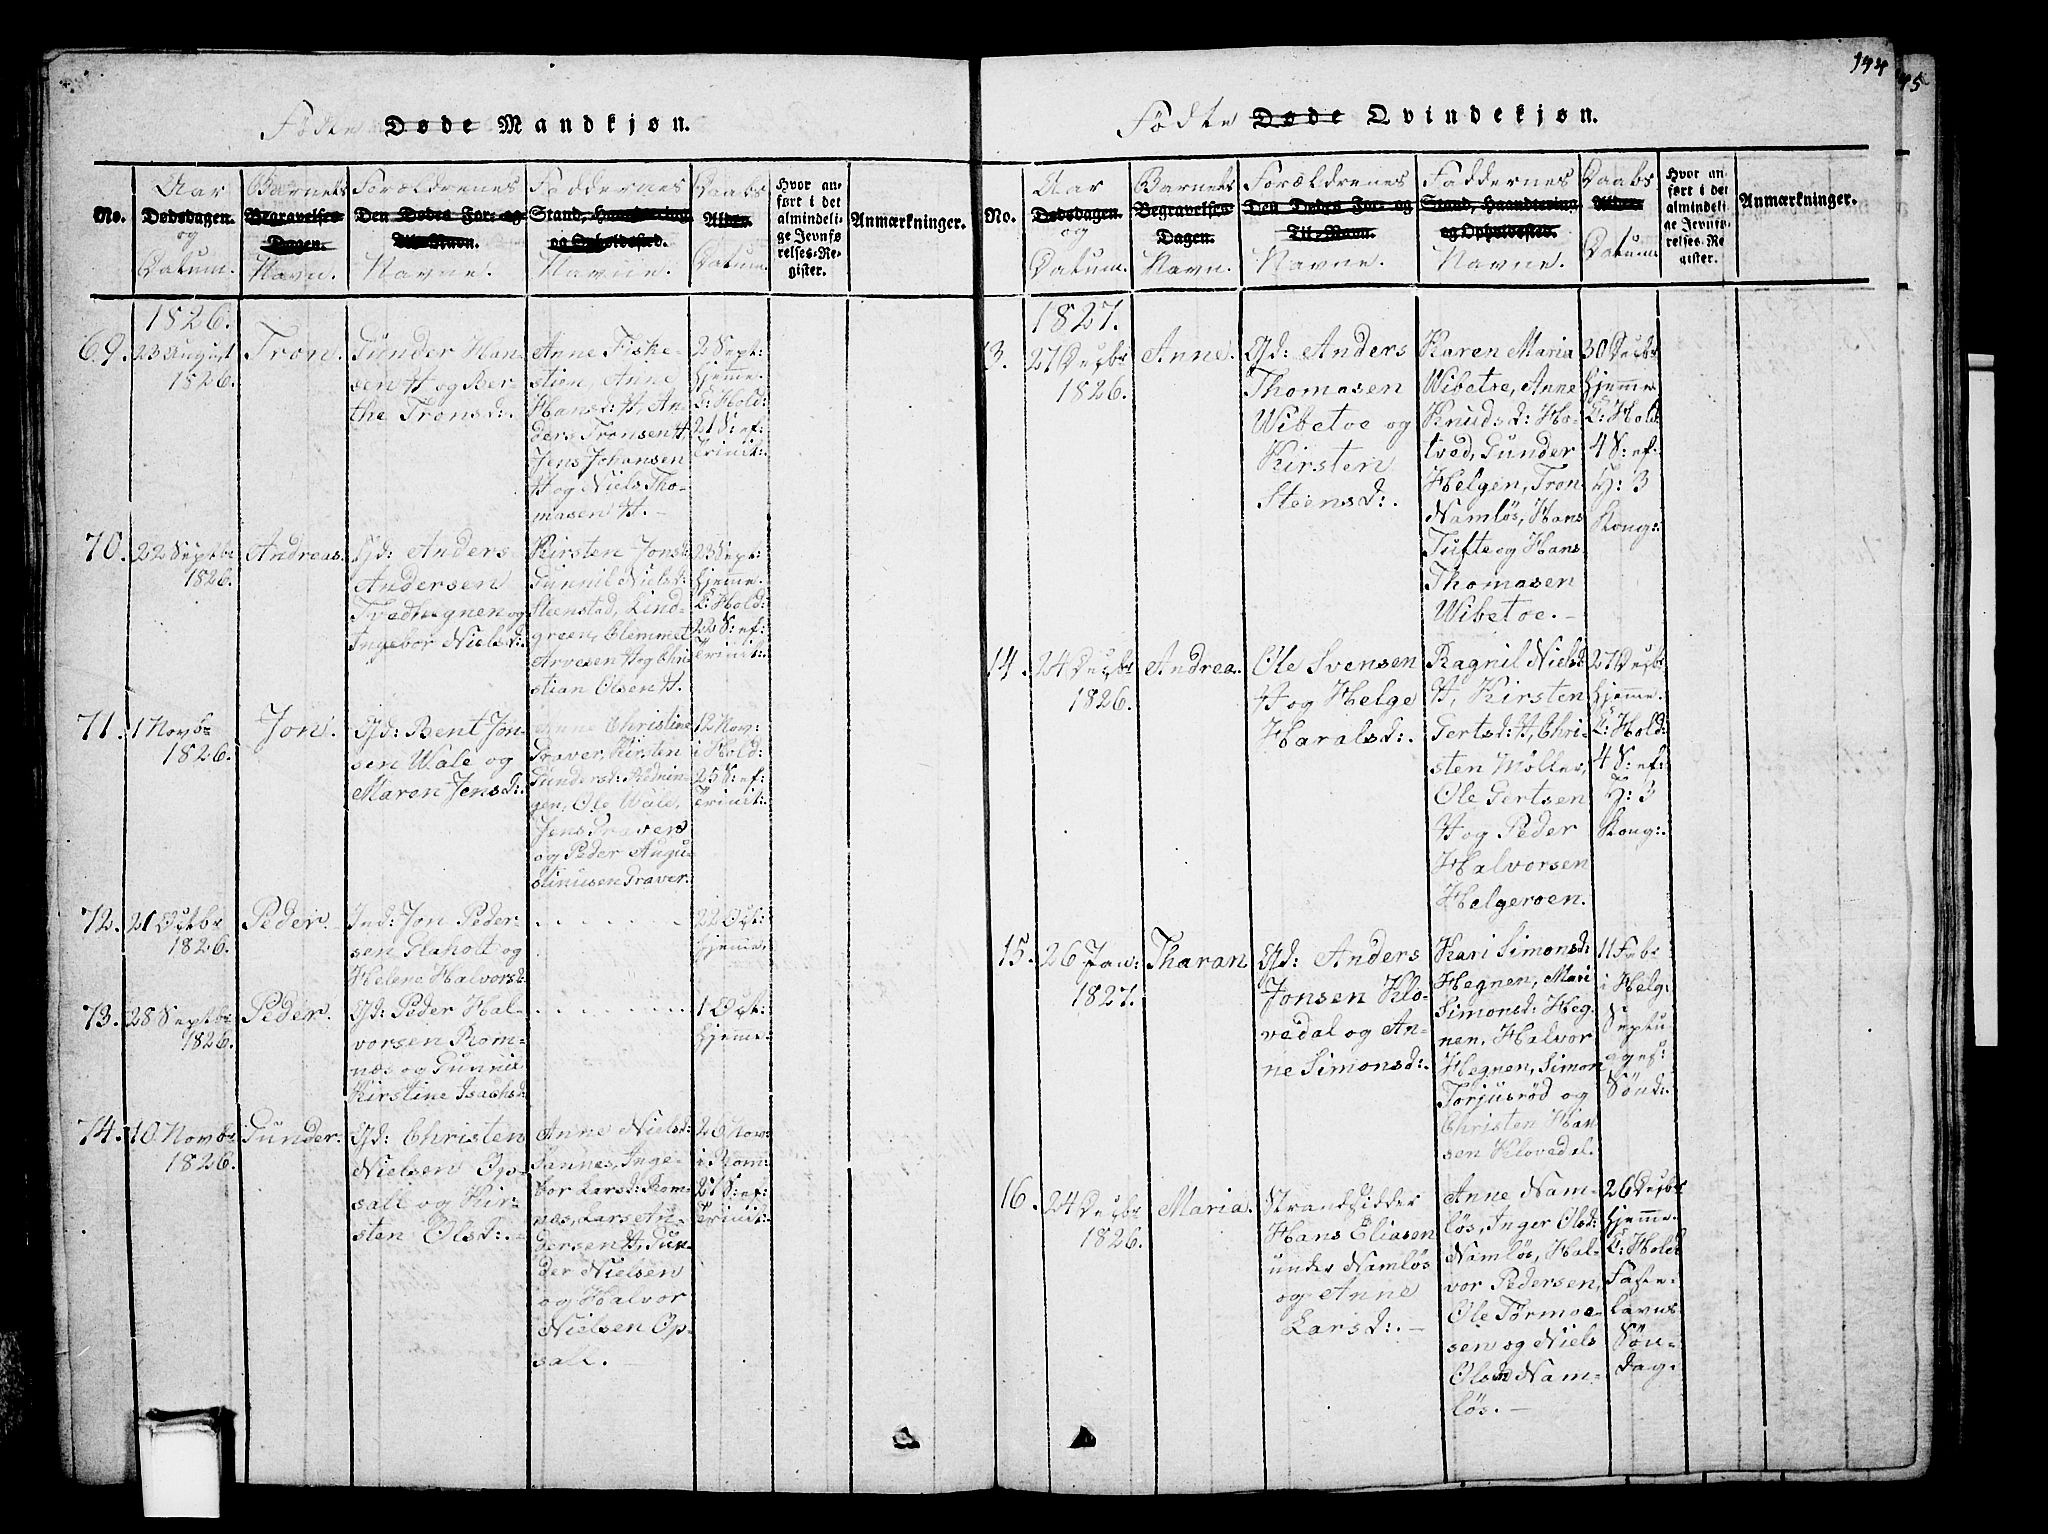 144
45
Födte Døde Mandkjøn.
No.
Aar
Dødsdagen.
og
Datum.
Barnets
Begravelses
Dagen.
Navn.
Forældrenes
Den Dødes For- og
Til-Navn.
Navne.
Faddernes
Stand, Haandtering
og Opholdssted.
Navne.
Daabs
Alder.
Datum.
Hvor an-
ført i det
almindeli-
ge Jevnfø
relses-Re-
gister.
Anmærkninger.
1826.
69.
23 August
1826.
Tron.
Gunder Han-
sen H og Ber-
the Tronsd:.
Anne Fiske-
stien, Anne
Hansd: H, An-
ders Tronsen H,
Jens Johansen
H og Niels Tho-
masen H. –
2 Sept:
hjemme.
C: Hold:
21 S: ef:
Trinit:.
70.
22 Septbr
1826.
Andreas.
Gd: Anders
Andersen
Tvedhegnen og
Ingebor Nielsd:.
Kirsten Jonsd:
Gunnil Nielsd:
Steenstad, Lind-
green, Clemmet
Arvesen H og Chri-
stian Olsen H.
23 Sept:
hjemme.
C: Hold:
22 S: ef:
Trinit:.
71.
1 Novbr
1826.
Jon.
Gd: Bent Jon-
sen Wale og
Maren Jensd:.
Anne Christine
Graver, Kirsten
Gundersd: Rednin-
gen, Ole Wale,
Jens Graver
og Peder Augu-
stinusen Graver.
12 Nov:
i Hold:
25 S: ef:
Trinit:.
72.
21 Octbr
1826.
Peder.
Ind: Jon Peder-
sen Glaholt og
Helene Halvorsd:
22 Oct:
hjeme.
73.
28 Septbr
1826.
Peder.
Gd: Peder Hal-
vorsen Rom-
næs og Gunnil
Kirstine Isachsd:
1 Oct:
hjeme.
74.
10 Novbr
1826.
Gunder.
Gd: Christen
Nielsen Op-
sall og Kir-
sten Olsd:. –
Anne Nielsd:
Sannes, Inge-
bor Larsd: Rom-
næs, Lars An-
dersen H, Gun-
der Nielsen
og Halvor
Nielsen Op-
sall. –
26 Nov:
i Rom:
27 S: ef:
Trinit:.
Födte Døde Qvindekjøn.
No.
Aar
Dødsdagen.
og
Datum.
Barnets
Begravelses
Dagen.
Navn.
Forældrenes
Den Dødes For- og
Til-Navn.
Navne.
Faddernes
Stand, Haandtering
og Opholdssted.
Navne.
Daabs
Alder.
Datum.
Hvor an-
ført i det
almindeli-
ge Jevnfø-
relses-Re-
gister.
Anmærkninger.
1827.
13.
27 Decbr
1826.
Anne.
Gd: Anders
Thomasen
Wibetoe og
Kirsten
Steensd:.
Karen Maria
Wibetoe, Anne
Knudsd: Ho-
tved, Gunder
Helgen, Tron
Namlös, Hans
Tufte og Hans
Thomasen
Wibetoe. –
30 Decbr
hjemme
C: Hold
4 S: ef:
H: 3
Kong:.
14.
24 Decbr
1826.
Andrea.
Ole Svensen
H og Helge
Haralsd:.
Ragnil Nielsd:
H, Kirsten
Gertsd: H, Chri-
sten Möller,
Ole Gertsen
H og Peder
Halvorsen
Helgeroen.
27 Decbr
hjemme.
C: Hold:
4 S: ef:
H: 3
Kong:.
15.
26 Jan:
1827.
Tharan
Gd: Anders
Jonsen Klo-
vedal og An-
ne Simonsd:.
Kari Simonsd:
Hegnen, Mari
Simonsd: Heg-
nen, Halvor
Hegnen, Simon
Torjusröd og
Christen Han
sen Klovedal.
11 Febr
i Helg:
Septu
ages:
Sönd:.
16.
24 Decbr
1826.
Maria.
Strandsidder
Hans Eliasen
under Namlös
og Anne
Larsd:. –
Anne Nam-
lös, Inger Olsd:
Namlös, Hal-
vor Pedersen,
Ole Tormoe-
sen og Niels
Olsen Nam-
lös. –
26 Decbr
hjemme.
C: Hold
Faste-
lavns
Sön-
dag.